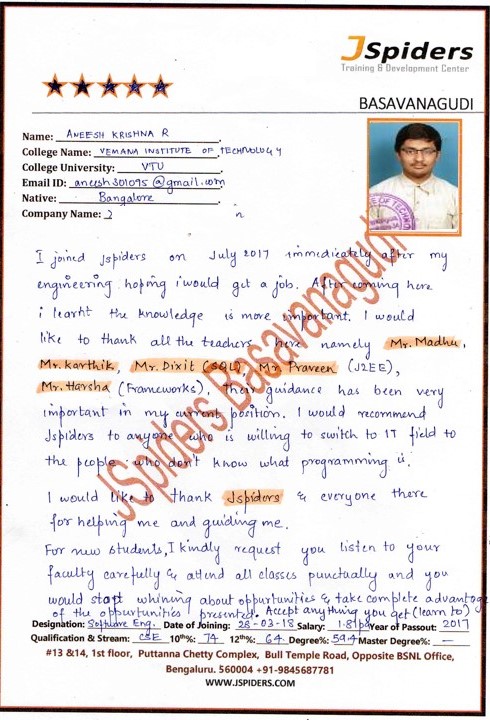 JSpiders
Training & Development Center
BASAVANAGUDI
Name: ANEESH KRISHNA R
College Name: VEMANA INSTITUTE OF TECHNOLOGY
College University: VTU
Email ID: aneesh301095@gmail.com
Native: Bangalore
Company Name:
I joined Jspiders on July 2017 immedicately after my
engineering hoping i would get a job. After coming here
i learht the knowledge is more important. I would
like to thank all the teachers here namely Mr. Madhu,
Mr. Karthik, Mr. Dixit (SQL) Mr Praveen (J2EE),
Mr. Harsha (Frameworks), Their guidance has been very
important in my current position. I would recommend
Jspiders to anyone who is willing to switch to IT field to
the people who don't know what programming is.
I would like to thank Jspiders & everyone there
for helping me and guiding me.
For new students, I kindly request you listen to your
faculty carefully & attend all classes punctually and you
would start whining about oppurtunities & take complete advantage
of the oppurtunities presented. Accept anything you get (learn to)
Designation: Software Eng. Date of Joining: 28-03-18 Salary: 1.8lpa Year of Passout: 2017
Qualification & Stream: CSE 10th%: 74 12th%: 64 Degree%: 59.4 Master Degree%: —
#13 &14, 1st floor, Puttanna Chetty Complex, Bull Temple Road, Opposite BSNL Office,
Bengaluru. 560004 +91-9845687781
WWW.JSPIDERS.COM
JSpiders Basavanagudi